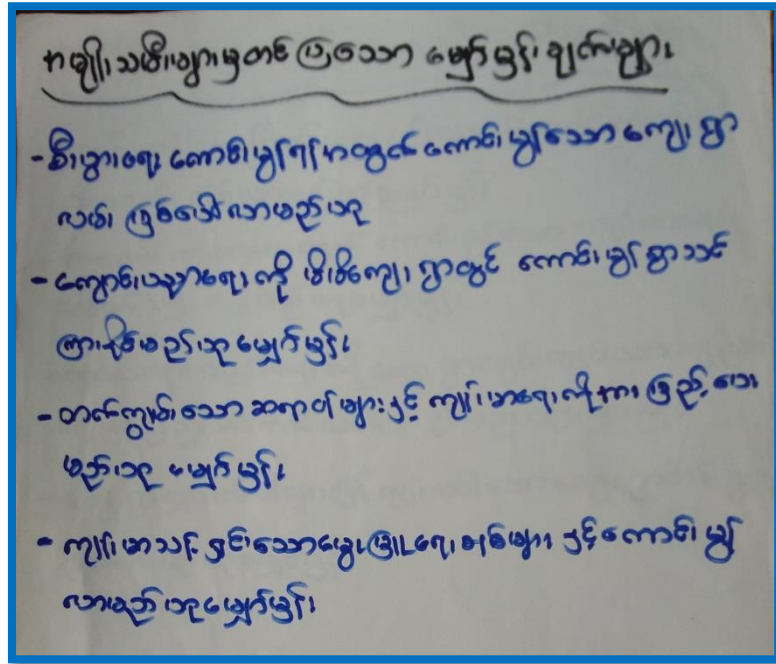 အမျိုးသမီးများမှတင်ပြသော မျှော်မှန်းချက်များ
- စီးပွားရေး ကောင်းမွန်ရန်အတွက် ကောင်းမွန်သော ကျေးရွာ
လမ်း ဖြစ်ပေါ်လာမည်ဟု
- ကျောင်းပညာရေးကို မိမိကျေးရွာတွင် ကောင်းမွန်စွာသင်
ကြားနိုင်မည်ဟုမျှော်မှန်း
- တတ်ကျွမ်းသော ဆရာဝန်များနှင့် ကျန်းမာရေးလိုအား ဖြည့်ပေး
မည်ဟု မျှော်မှန်း
- ကျန်းမာသန်ရှင်းသောမွေးမြူရေးစနစ်များနှင့်ကောင်းမွန်
လာမည်ဟုမျှော်မှန်း